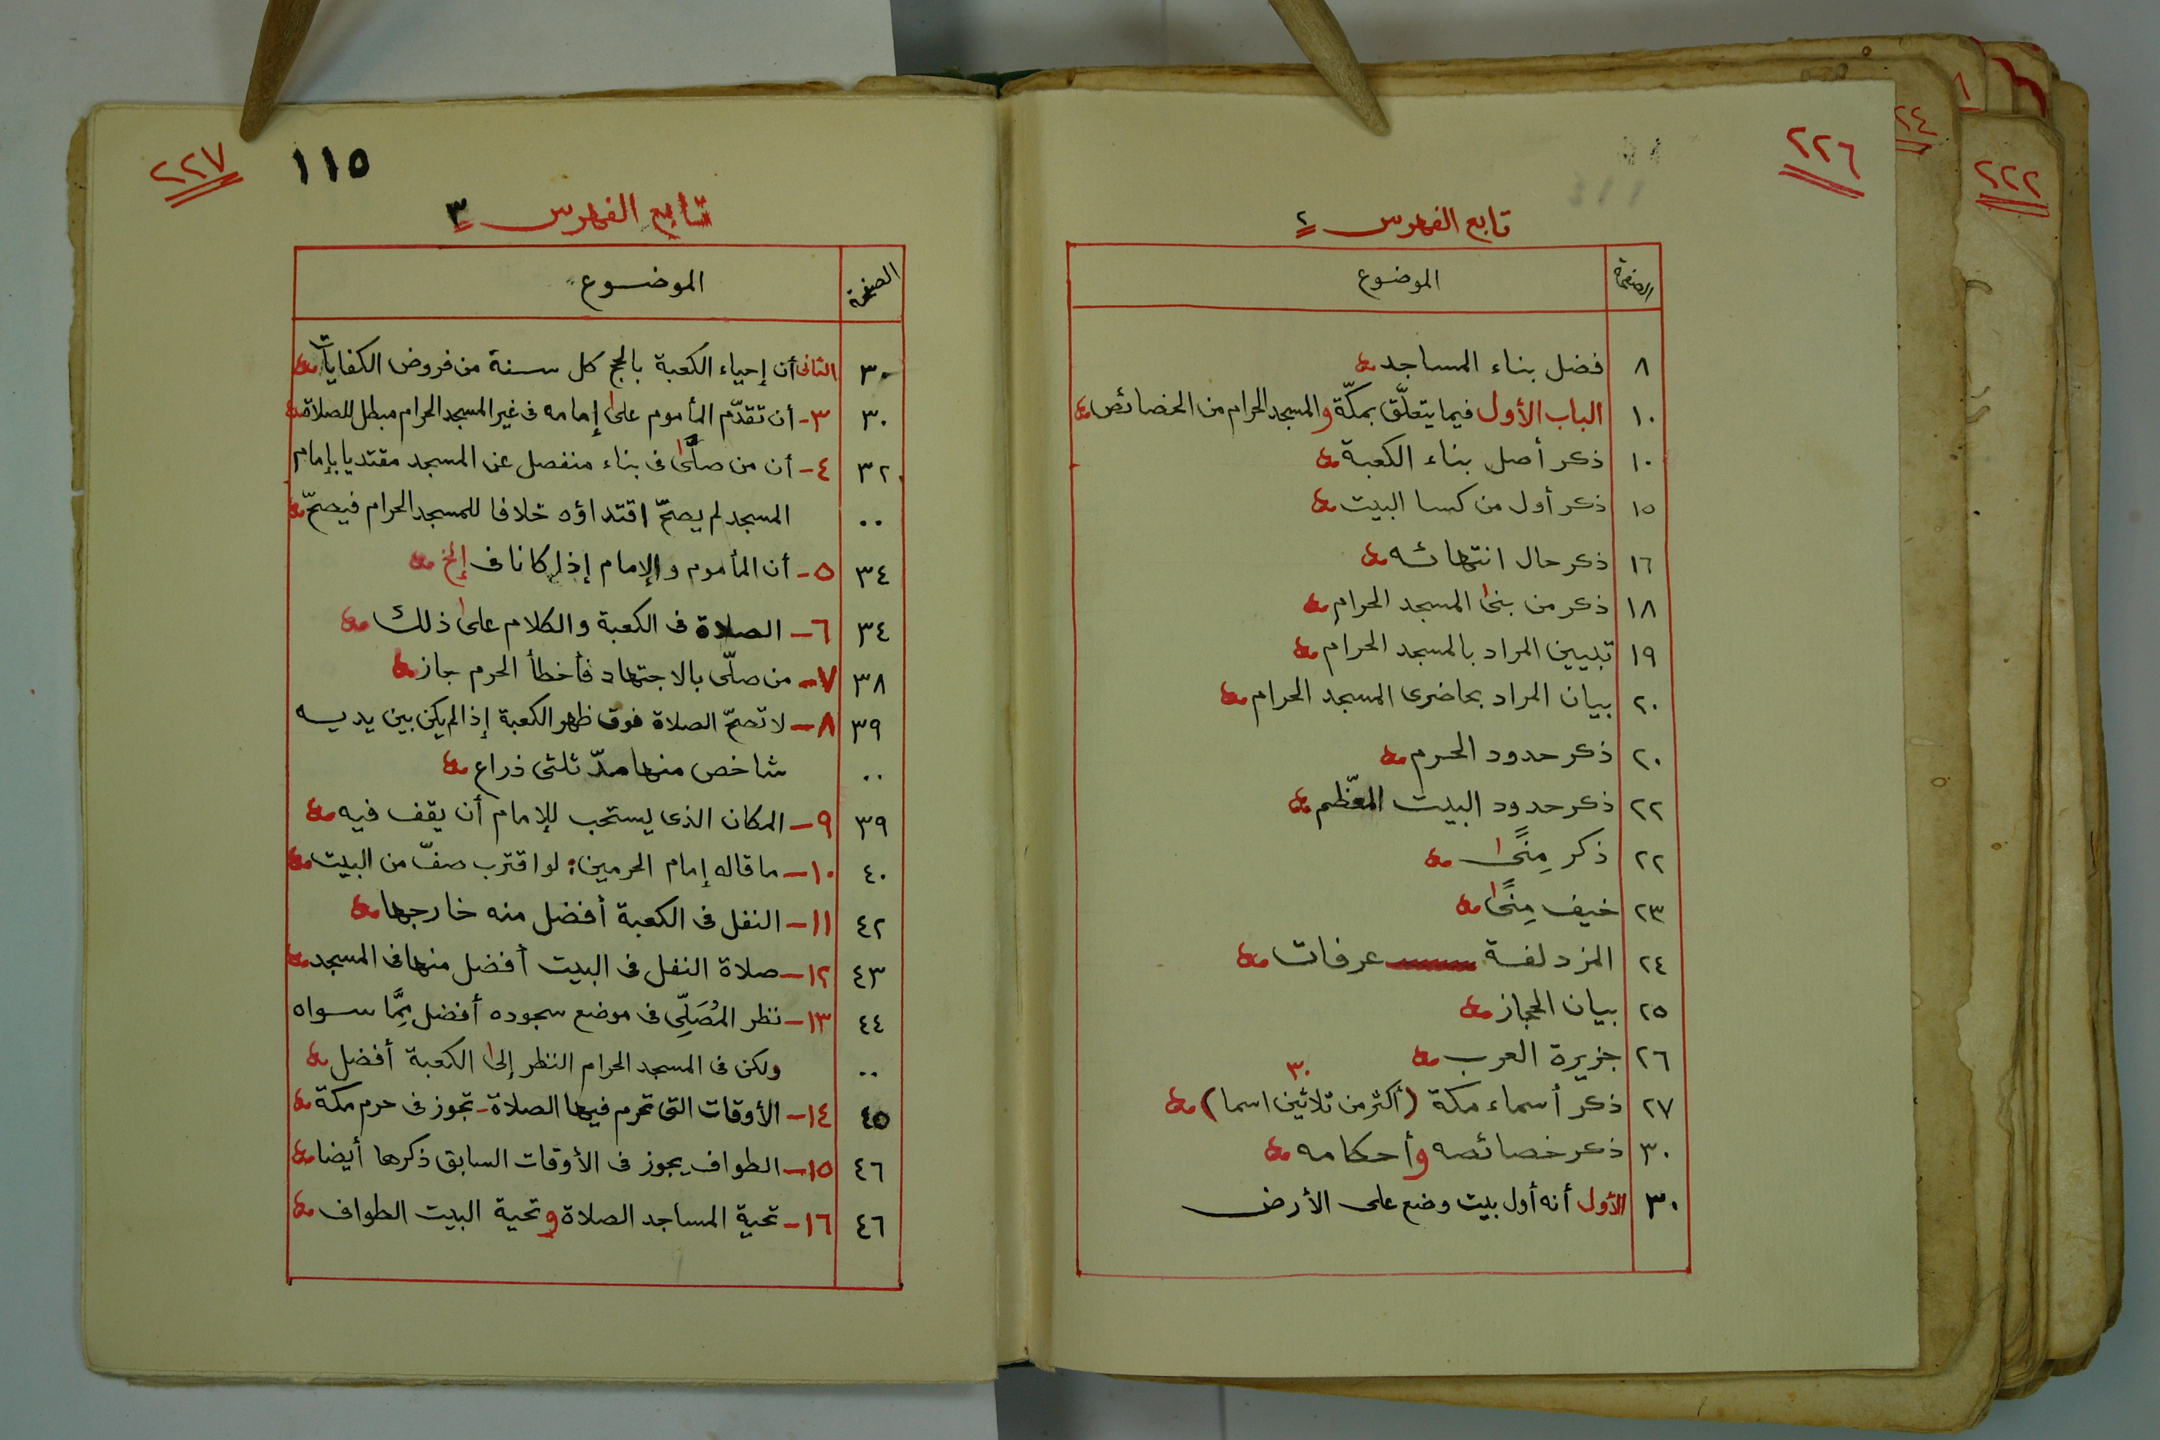 ٢٢٦
تابع الفهرس ٢
الصفحة الموضوع
٨ فضل بناء المساجد
١٠ الباب الأول فيما يتعلّق بمكّة والمسجد الحرام من الخصائص
١٠ ذكر أصل بناء الكعبة
١٥ ذكر أول من كسا البيت
١٦ ذكر حال انتهائه
١٨ ذكر من بنى المسجد الحرام
١٩ تبيين المراد بالمسجد الحرام
٢٠ بيان المراد بحاضرى المسجد الحرام
٢٠ ذكر حدود الحرم
٢٢ ذكر حدود البيت المعظّم
٢٢ ذكر مِنًى
٢٣ خيف مِنًى
٢٤ المزدلفة عرفات
٢٥ بيان الحجاز
٢٦ جزيرة العرب
٣٠
٢٧ ذكر أسماء مكة (أكثر من ثلاثين اسما)
٣٠ ذكر خصائصه وأحكامه
٣٠ الأول أنه أول بيت وضع على الأرض
٢٢٧
١١٥
تابع الفهرس ٣
الصفحة الموضوع
٣٠ الثانى أن إحياء الكعبة بالحج كل سنة من فروض الكفايات
٣٠ ٣- أن تقدّم المأموم على إمامه فى غير المسجد الحرام مبطل للصلاة
٣٢ ٤- أن من صلَّى فى بناء منفصل عن المسجد مقتديا بإمام
.. المسجد لم يصحّ اقتداؤه خلافا للمسجد الحرام فيصحّ
٣٤ ٥- أن المأموم والإمام إذا كانا فى إلخ
٣٤ ٦- الصلاة فى الكعبة والكلام على ذلك
٣٨ ٧- من صلّى بالاجتهاد فأخطأ الحرم جاز
٣٩ ٨- لا تصحّ الصلاة فوق ظهر الكعبة إذا لم يكن بين يديه
.. شاخص منها مدّ ثلثى ذراع
٣٩ ٩- المكان الذى يستحب للإمام أن يقف فيه
٤٠ ١٠- ما قاله إمام الحرمين: لو اقترب صفّ من البيت
٤٢ ١١- النفل فى الكعبة أفضل منه خارجها
٤٣ ١٢- صلاة النفل فى البيت أفضل منها فى المسجد
٤٤ ١٣- نظر المُصَلِّى فى موضع سجوده أفضل مِمَّا سواه
.. ولكن فى المسجد الحرام النظر إلى الكعبة أفضل
٤٥ ١٤- الأوقات التى تحرم فيها الصلاة - تجوز فى حرم مكة
٤٦ ١٥- الطواف يجوز فى الأوقات السابق ذكرها أيضا
٤٦ ١٦- تحية المساجد الصلاة وتحية البيت الطواف
٢٢٢